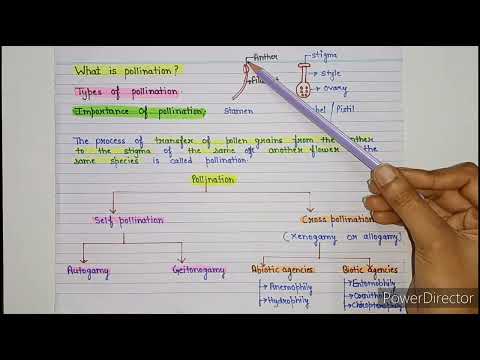 What is pollination?
Types of pollination.
Importance of pollination.
Anther
Stamen
stigma
style
ovary
Pistil
The process of transfer of pollen grains from the
to the stigma of the same or another flower
the same species is called pollination.
Pollination
Self pollination
Cross pollination
(Xenogamy or allogamy)
Autogamy
Geitonogamy
Abiotic agencies
Anemophily
Hydrophily
Biotic agencies
Entomophily
PowerDirector